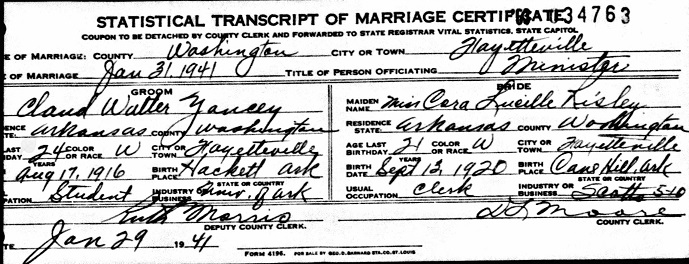 STATISTICAL TRANSCRIPT OF MARRIAGE CERTIFICATE 34763
COUPON TO BE DETACHED BY COUNTY CLERK AND FORWARDED TO STATE REGISTRAR VITAL STATISTICS, STATE CAPITOL
E OF MARRIAGE: COUNTY Washington CITY OR TOWN Fayetteville
E OF MARRIAGE Jan 31, 1941 TITLE OF PERSON OFFICIATING Minister
GROOM BRIDE
Claud Walter Yancey MAIDEN NAME Miss Cora Lucille Risley
ENCE ATE. Arkansas COUNTY Washington RESIDENCE STATE: Arkansas COUNTY Washington
LAST BIRTHDAY 24 YEARS COLOR OR RACE W CITY OR TOWN Fayetteville AGE LAST BIRTHDAY 21 COLOR OR RACE W CITY OR TOWN Fayetteville
Aug 17, 1916 BIRTH PLACE Hackett Ark STATE OR COUNTRY BIRTH DATE Sept 13, 1920 BIRTH PLACE Cane Hill Ark STATE OR COUNTRY
PATION Student INDUSTRY OR BUSINESS Univ. of Ark USUAL OCCUPATION Clerk INDUSTRY OR BUSINESS Scotts 5-10
Ruth Morris DEPUTY COUNTY CLERK. Moore COUNTY CLERK.
TE Jan 29 1941
FORM 4196. FOR SALE BY GEO. D. BARNARD STA. CO. ST. LOUIS